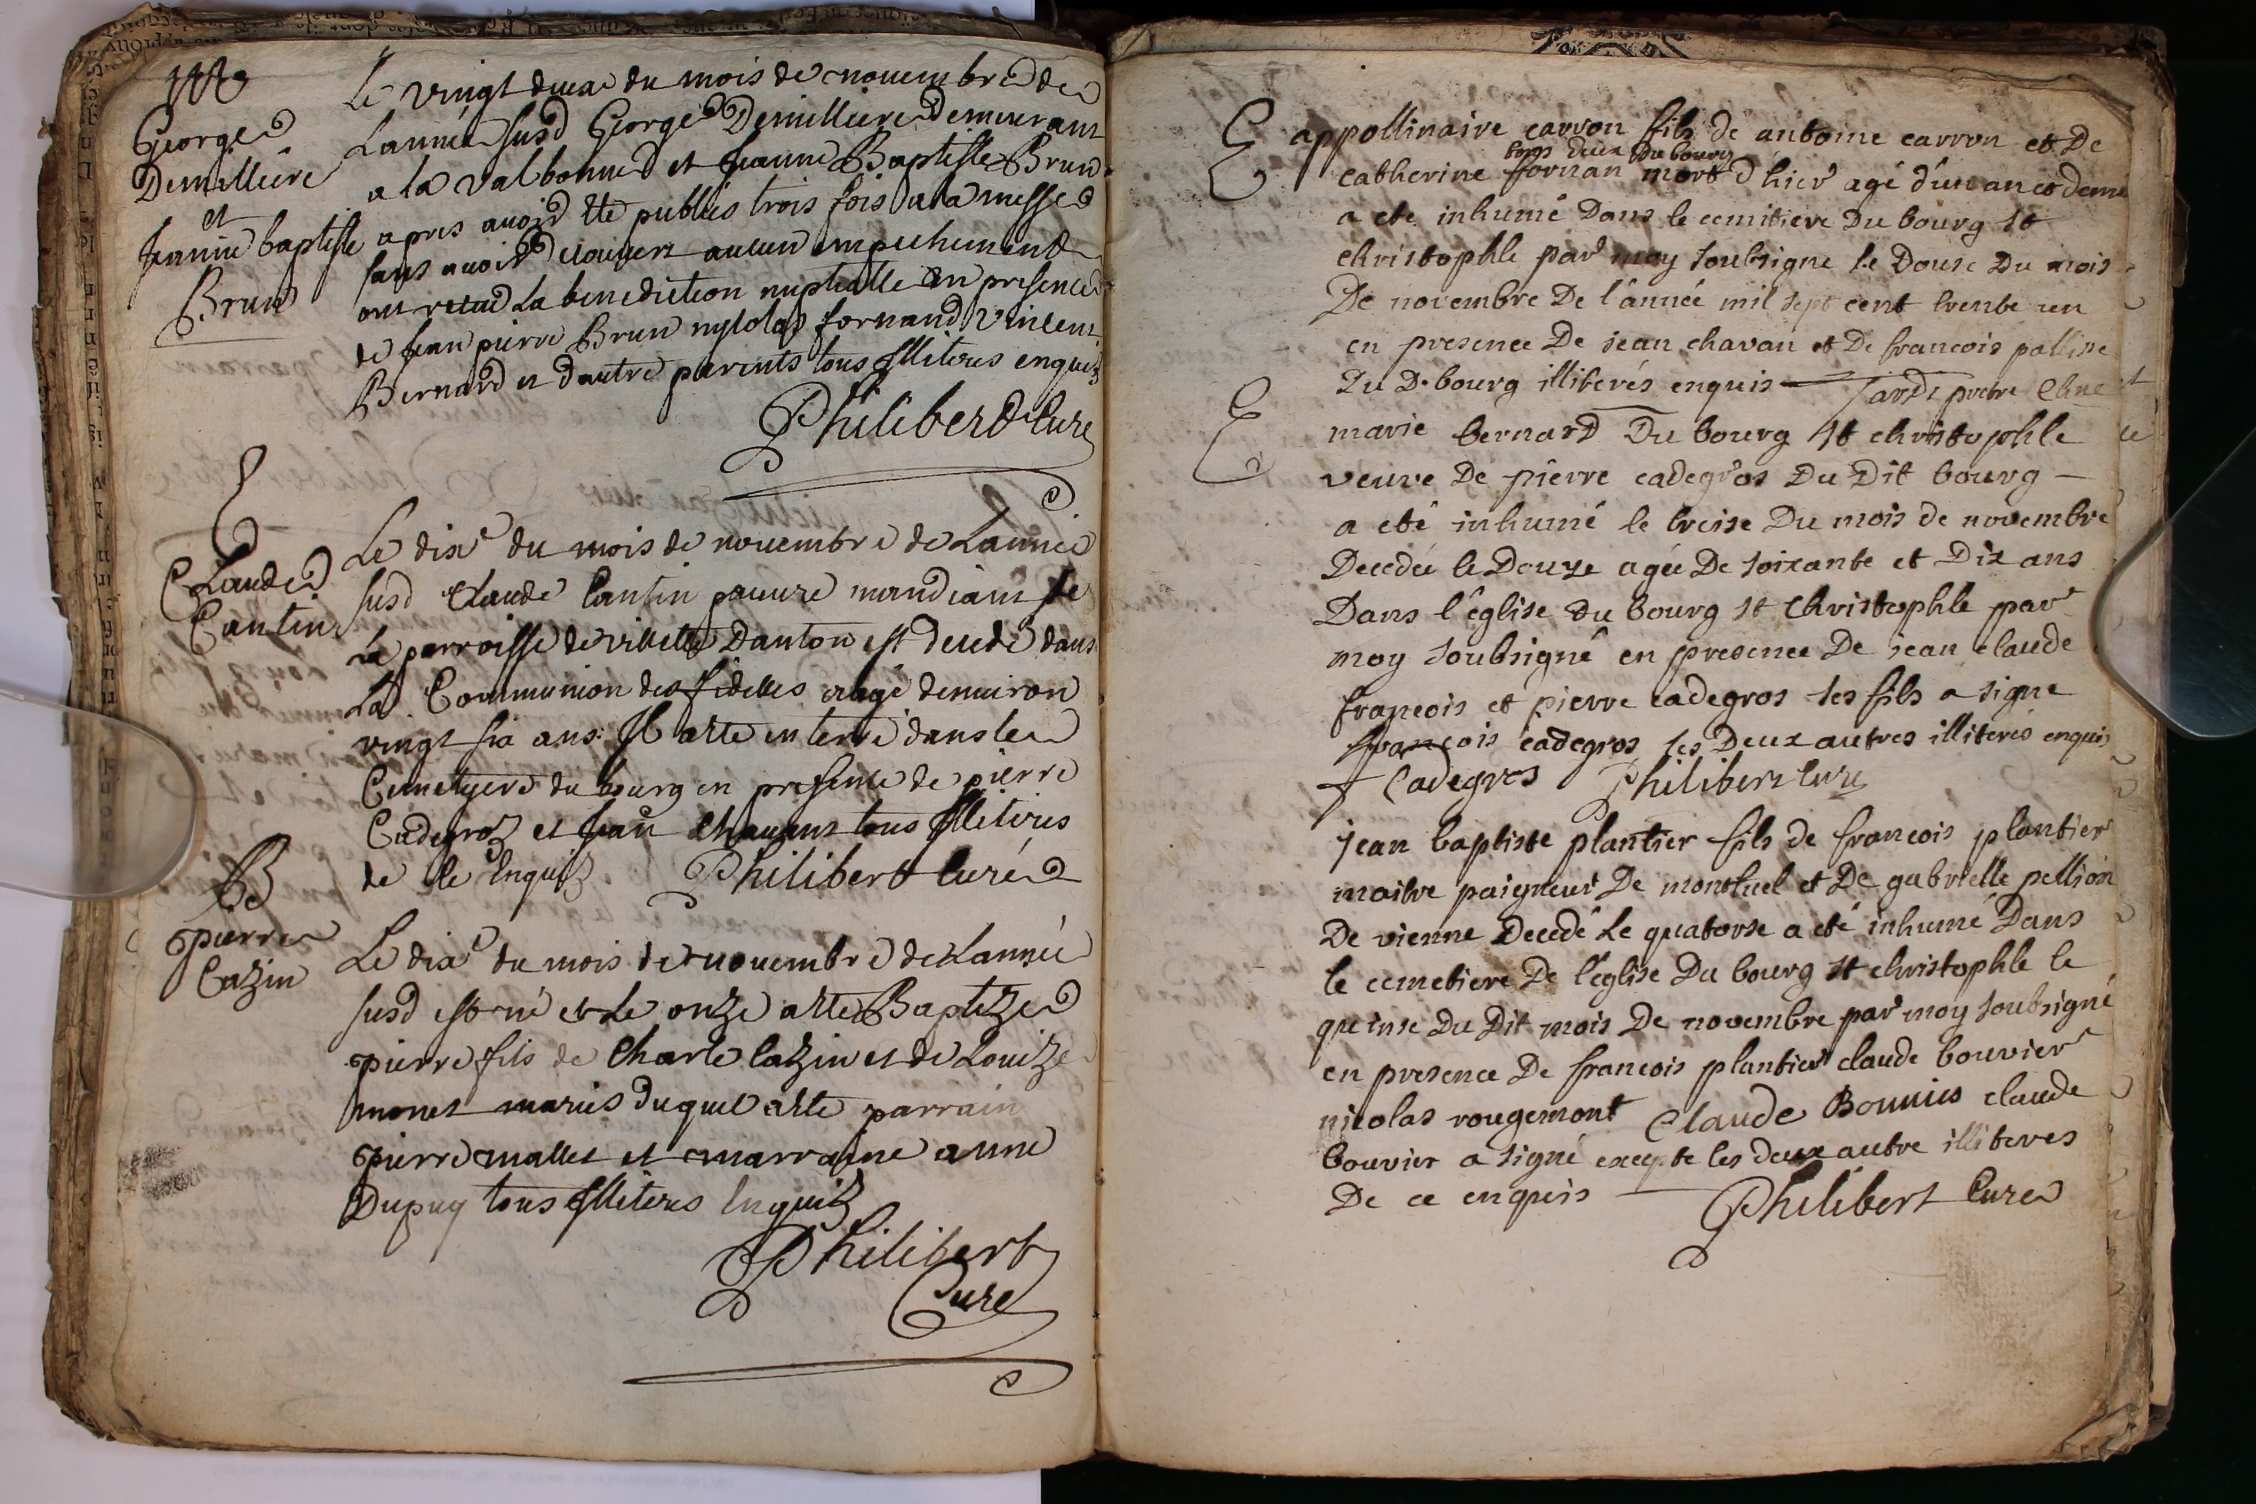 George
Demilliere
et
Jeanne baptiste
Brun
Le vingt deux du mois de novembre de
Lannée susd George Demilliere demeurant
a la valbonne et Jeanne Baptiste Brun
apres avoir ete publiés trois fois a la messe
sans avoir decouvert aucun empechement
ont receu La benediction nuptialle en presence
de Jean pierre Brun nycolas fornand Vincent
Bernard et dautre parents tous Illiteres enquis
Philibert Curé
E
Claude
Cantin
Le dixe du mois de novembre de Lannée
susd Claude Cantin pauvre mandiant de
La parroisse de villette Danton est decedé dans
La Communion des fidelles aagé denviron
vingt six ans. Il a ete enterré dans le
Cemetyere du bourg en presence de pierre
Cadegroz et Jean Chavant tous Illiteres
de ce Enquis Philibert Curé
B
pierre
Cazin
Le dixe du mois de novembre de Lannée
susd est né et le onze a ete Baptize
pierre fils de Charle Cazin et de Louize
monet mariés duquel a ete parrain
pierre mallet et marraine anne
Dupuy tous Illiteres Enquis
Philibert
Curé
E appollinaire carron fils de antoine carron et De
tous deux du bourg
catherine fornan mort d'hier agé d'un an et demi
a ete inhumé Dans le cemitiere Du bourg st
christophle par moy soubsigne le Douse Du mois
De novembre De l'année mil sept cent trente un
en presence De jean chavan et De francois pallisse
Du D. bourg illiterés enquis Jards pretre
E
marie bernard Du bourg st christophle
veuve De pierre cadegros Du Dit bourg
a eté inhumé le treise Du mois de novembre
Decedée le Douze agée De soixante et Dix ans
Dans l'église du bourg st christophle par
moy soubsigné en presence De jean claude
francois et pierre cadegros ses fils a signe
francois cadegros les Deux autres illiterés enquis
f Cadegros Philibert Curé
jean baptiste plantier fils de francois plantier
maitre paigneur De montluel et De gabrielle pellion
De vienne Decedé le quatorse a eté inhumé Dans
le cemetiere De l'église Du bourg st christophle le
quinse Du Dit mois De novembre par moy soubsigné
en presence De francois plantier claude bouvier
nicolas rougemont Claude Bouvies claude
bouvier a signé excepte les deux autre illiteres
De ce enquis Philibert Curé